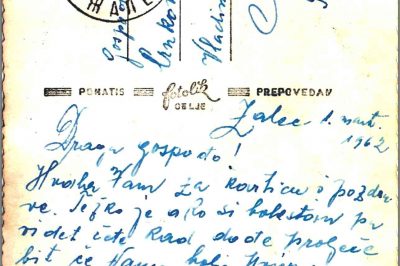 ŽALE
Gospo
Crnkov
Vladim
PONATIS fotolik CELJE PREPOVEDAN
Žalec 1. mart.
1962
Draga gospođo!
Hvala Vam za karticu i pozdra
ve. Teško je ako si bolestan pr
videt ćete kad dođe proljeće
bit će Vam bolj